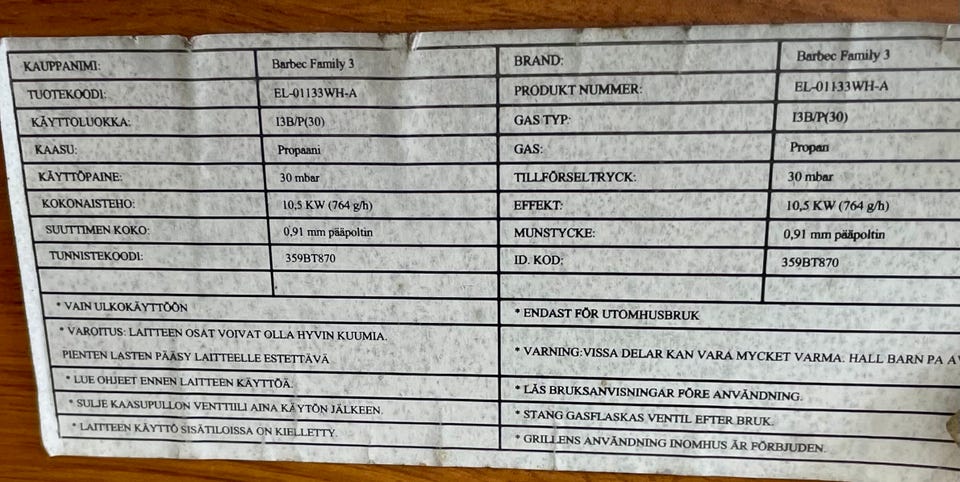 KAUPPANIMI: Barbec Family 3 BRAND: Barbec Family 3
TUOTEKOODI: EL-01133WH-A PRODUKT NUMMER: EL-01133WH-A
KÄYTTOLUOKKA: I3B/P(30) GAS TYP: I3B/P(30)
KAASU: Propaani GAS: Propan
KÄYTTÖPAINE: 30 mbar TILLFÖRSELTRYCK: 30 mbar
KOKONAISTEHO: 10,5 KW (764 g/h) EFFEKT: 10,5 KW (764 g/h)
SUUTTIMEN KOKO: 0,91 mm pääpoltin MUNSTYCKE: 0,91 mm pääpoltin
TUNNISTEKOODI: 359BT870 ID. KOD: 359BT870
* VAIN ULKOKÄYTTÖÖN
* VAROITUS: LAITTEEN OSAT VOIVAT OLLA HYVIN KUUMIA.
PIENTEN LASTEN PÄÄSY LAITTEELLE ESTETTÄVÄ
* LUE OHJEET ENNEN LAITTEEN KÄYTTÖÄ.
* SULJE KAASUPULLON VENTTIILI AINA KÄYTÖN JÄLKEEN.
* LAITTEEN KÄYTTÖ SISÄTILOISSA ON KIELLETTY.
* ENDAST FÖR UTOMHUSBRUK
* VARNING:VISSA DELAR KAN VARA MYCKET VARMA. HALL BARN PA
* LÄS BRUKSANVISNINGAR FÖRE ANVÄNDNING.
* STANG GASFLASKAS VENTIL EFTER BRUK.
* GRILLENS ANVÄNDNING INOMHUS ÄR FÖRBJUDEN.